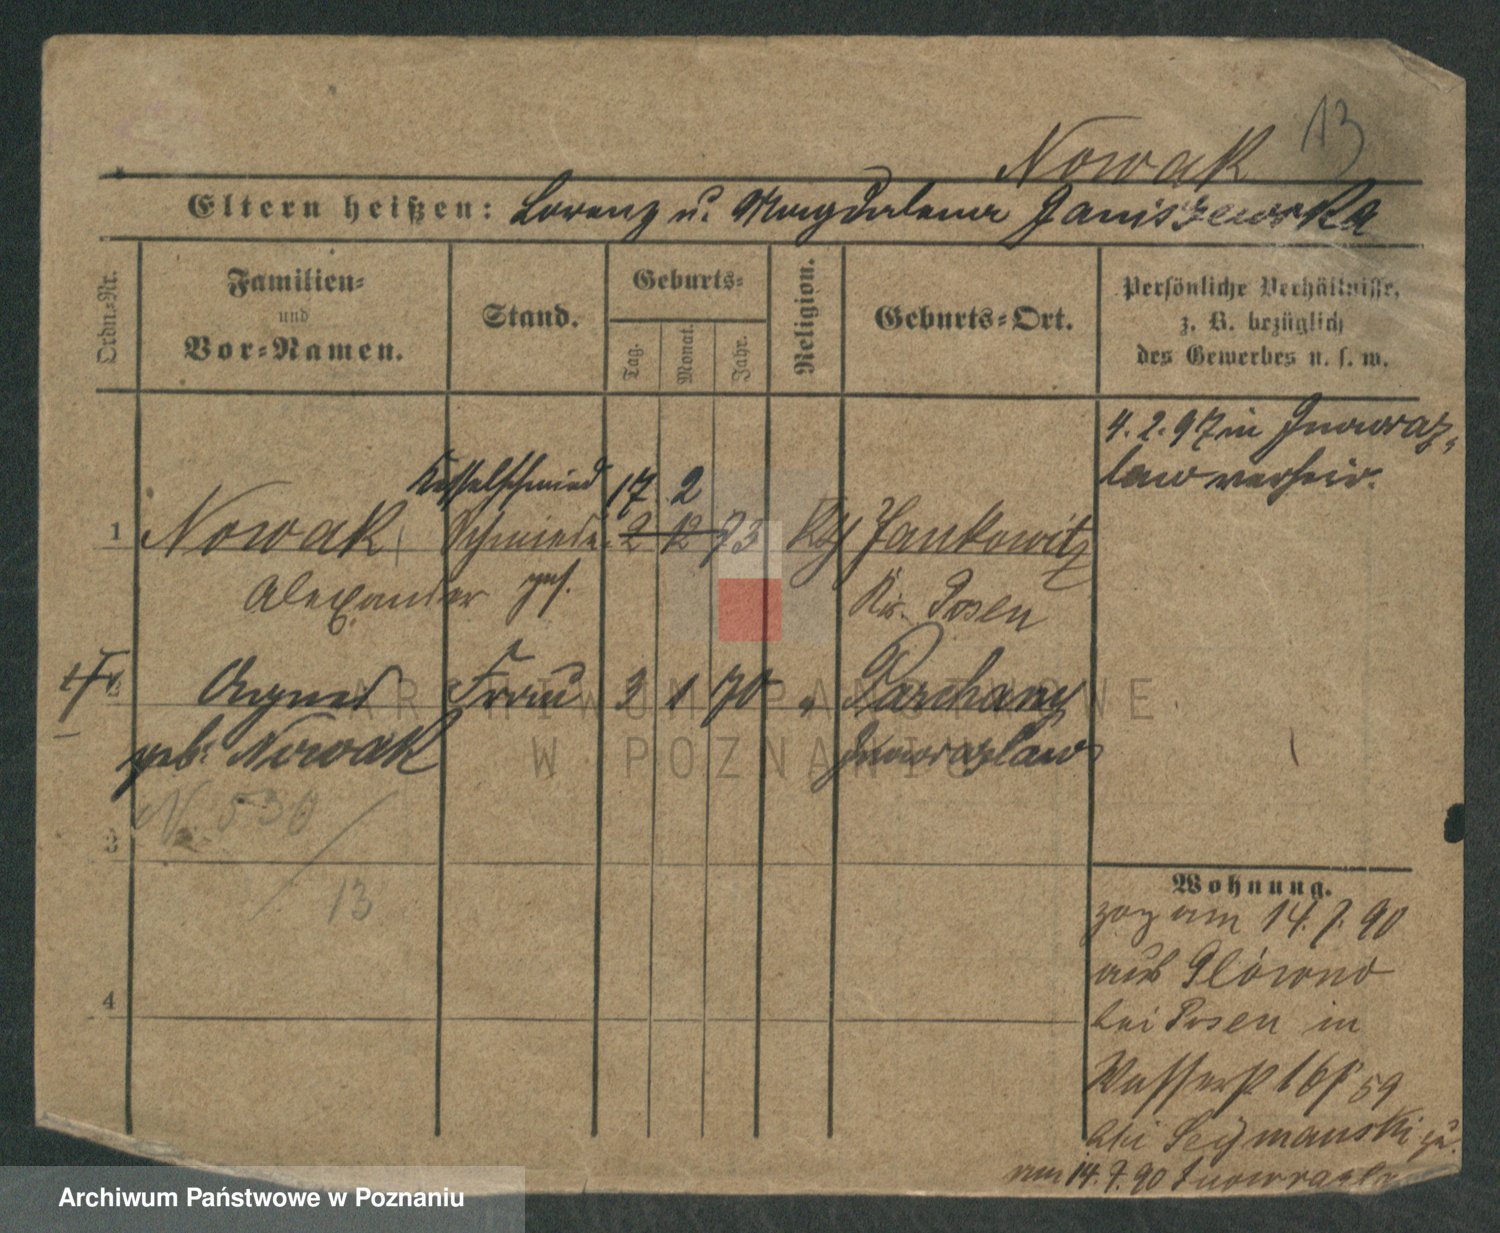 Nowak 13
Eltern heißen: Lorenz u. Magdalena Janiszewska
Ordn.-Nr.
Familien-
und
Vor-Namen.
Stand.
Geburts-
Tag.
Monat.
Jahr.
Religion.
Geburts-Ort.
Persönliche Verhältnisse,
z. B. bezüglich
des Gewerbes u. s. w.
4. 2. 97 in Inowraz-
law verheir.
Kesselschmied 17 2
1 Nowak Schmiede 2 12 73 Kth Jankowitz
Alexander ges. Kr. Posen
2 Agnes Frau 3 1 70 " Parchany
geb. Nowak Inowrazlaw
N. 530
3
13
4
Wohnung.
zog am 14. 7. 90
aus Glówno
bei Posen in
Wasserst 16
bei
am 14. 7. 90
ARCHIWUM PAŃSTWOWE
W POZNANIU
Archiwum Państwowe w Poznaniu